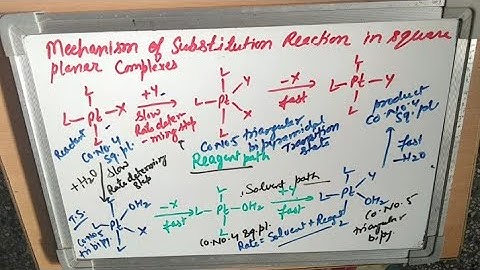 Mechanism of Substitution Reaction in square
planar Complexes
L
L-Pt-X
L
+Y
slow
Rate deter
-mining step
L
L-Pt
Y
X
L
-X
fast
L
L-Pt-Y
L
Reactant
Co.No.4
Sq.pl.
Co.No 5 triangular
bipyramidal
Transition
State
product
Co.No.4
Sq.pl
Reagent path
+H2O
slow
Rate determing
step
fast
-H2O
T.S.
L
L-Pt
OH2
X
L
Co.No 5
tri bipy.
-X
fast
L
L-Pt-OH2
L
Co.No.4 sq.pl.
Solvent path
+Y
fast
L
L-Pt
Y
OH2
L
Co.No.5
triangular
bipy.
Rate = Solvent + Reagent